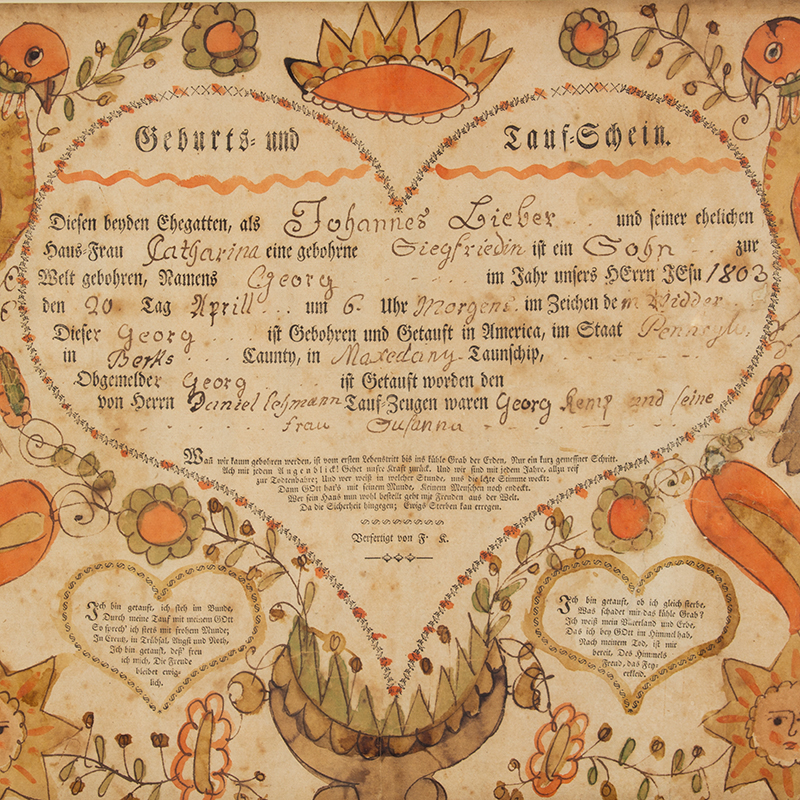 Geburts- und Tauf-Schein.
Diesen beyden Ehegatten, als Johannes Lieber und seiner ehelichen
Haus-Frau Catharina eine gebohrne Siegfriedin ist ein Sohn zur
Welt gebohren, Namens Georg im Jahr unsers HErrn JEsu 1803
den 20. Tag Aprill um 6. Uhr Morgens. im Zeichen dem Widder
Dieser Georg ist Gebohren und Getauft in America, im Staat Pennsylv.
in Berks Caunty, in Maxedany Taunschip,
Obgemelder Georg ist Getauft worden den
von Herrn Daniel Lehmann Tauf-Zeugen waren Georg Kemp und seine
frau Susanna
Wañ wir kaum gebohren werden, ist vom ersten Lebenstritt bis ins kühle Grab der Erden, Nur ein kurz gemeßner Schritt.
Ach mit jedem Augenblick! Gehet unsre Kraft zurück, Und wir sind mit jedem Jahre, allzu reif
zur Todtenbahre; Und wer weiß in welcher Stunde, uns die letzte Stimme weckt:
Dann GOtt hat's mit seinem Munde, Keinem Menschen noch endeckt.
Wer sein Haus nun wohl bestellt geht mit Freuden aus der Welt.
Da die Sicherheit hingegen; Ewigs Sterben kan erregen.
Verfertigt von F. K.
Ich bin getauft, ich steh im Bunde,
Durch meine Tauf mit meinem GOtt
So sprech' ich stets mit frohem Munde;
In Creutz, in Trübsal, Angst und Noth,
Ich bin getauft, deß' freu
ich mich, Die Freude
bleibet ewig-
lich.
Ich bin getauft, ob ich gleich sterbe,
Was schadet mir das kühle Grab?
Ich weiß mein Vaterland und Erbe,
Das ich bey GOtt im Himmel hab,
Nach meinem Tod, ist mir
bereit, Des Himmels
Freud, das Fey-
erkleid.